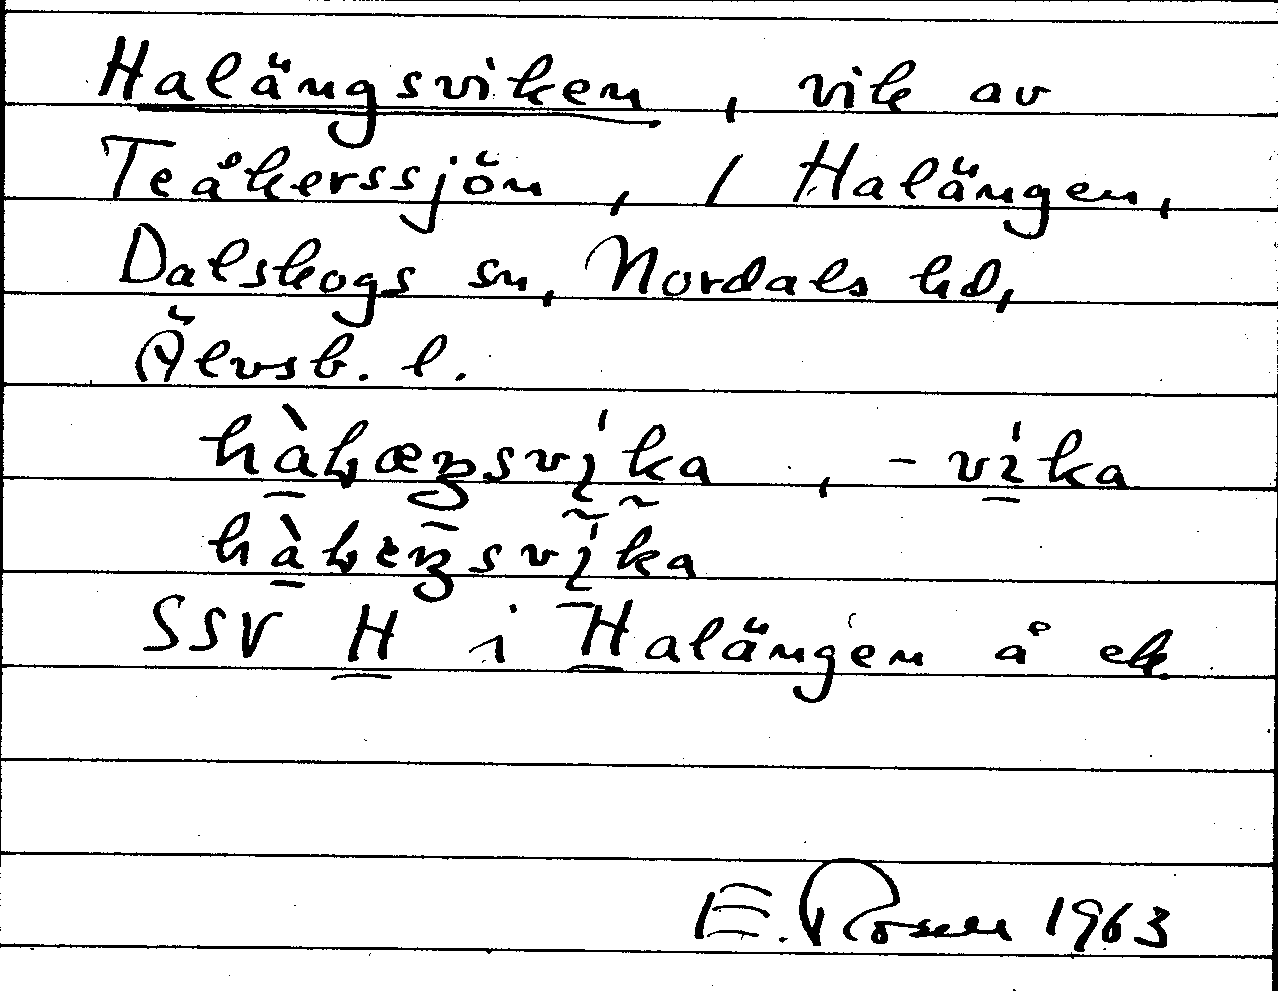 Halängsviken, vik av
Teåkerssjön, / Halängen,
Dalskogs sn, Nordals hd,
Älvsb. l.
hàɫæŋsví̜ka, -víka
hàɫɛŋsví̜ka
SSV H i Halängen å ek
E. Rosell 1963